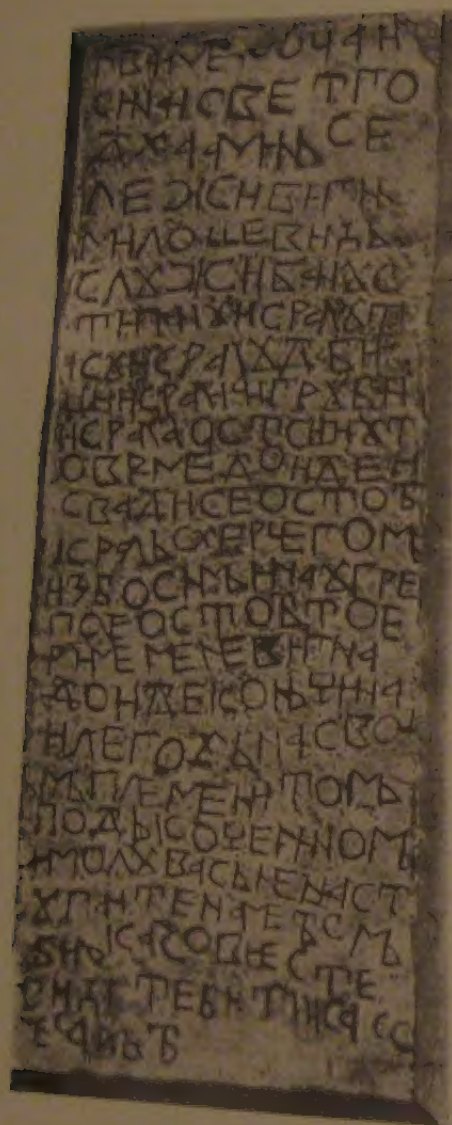 ВАИМЕ ОЧАИ
СИНАИСВЕТГО
ДХААМИНЬ СЕ
ЛЕЖИ ВИГНЬ
МИЛОШЕВИЋЬ
СЛȢЖИ БАНȢ С
ТИПАНȢ И КРАЛȢ Т
КȢ И КРАЛȢ ДАБИ
ШИ И КРАЛИ ГРȢБИ
И КРАЛА ОСТОИ И Ȣ Т
О ВРМЕ ДОИДЕ И
СВАДИ СЕ ОСТОѢ
КРАЛЬ С ХЕРЧЕГОМ
И З БОСНМЬ И НА ȢГРЕ
ПОЕ ОСТОѢ ТО Е
РИМЕ МЕНЕ ВИГНА
ДОИДЕ КОНЬЧИНА
И ЛЕГОХЬ НА СВО
МЬ ПЛЕМЕНИТОМЬ
ПОДЬ КОЧЕРИНОМЬ
И МОЛȢ ВАСЬ НЕ НАСТ
ȢПАИТЕ НА МЕ ѢСМЬ
БИЛЬ КАКО ВИ ЕСТЕ
ВИ ЋЕТЕ БИТИ КАКО
ЕСАМЬ Ѣ